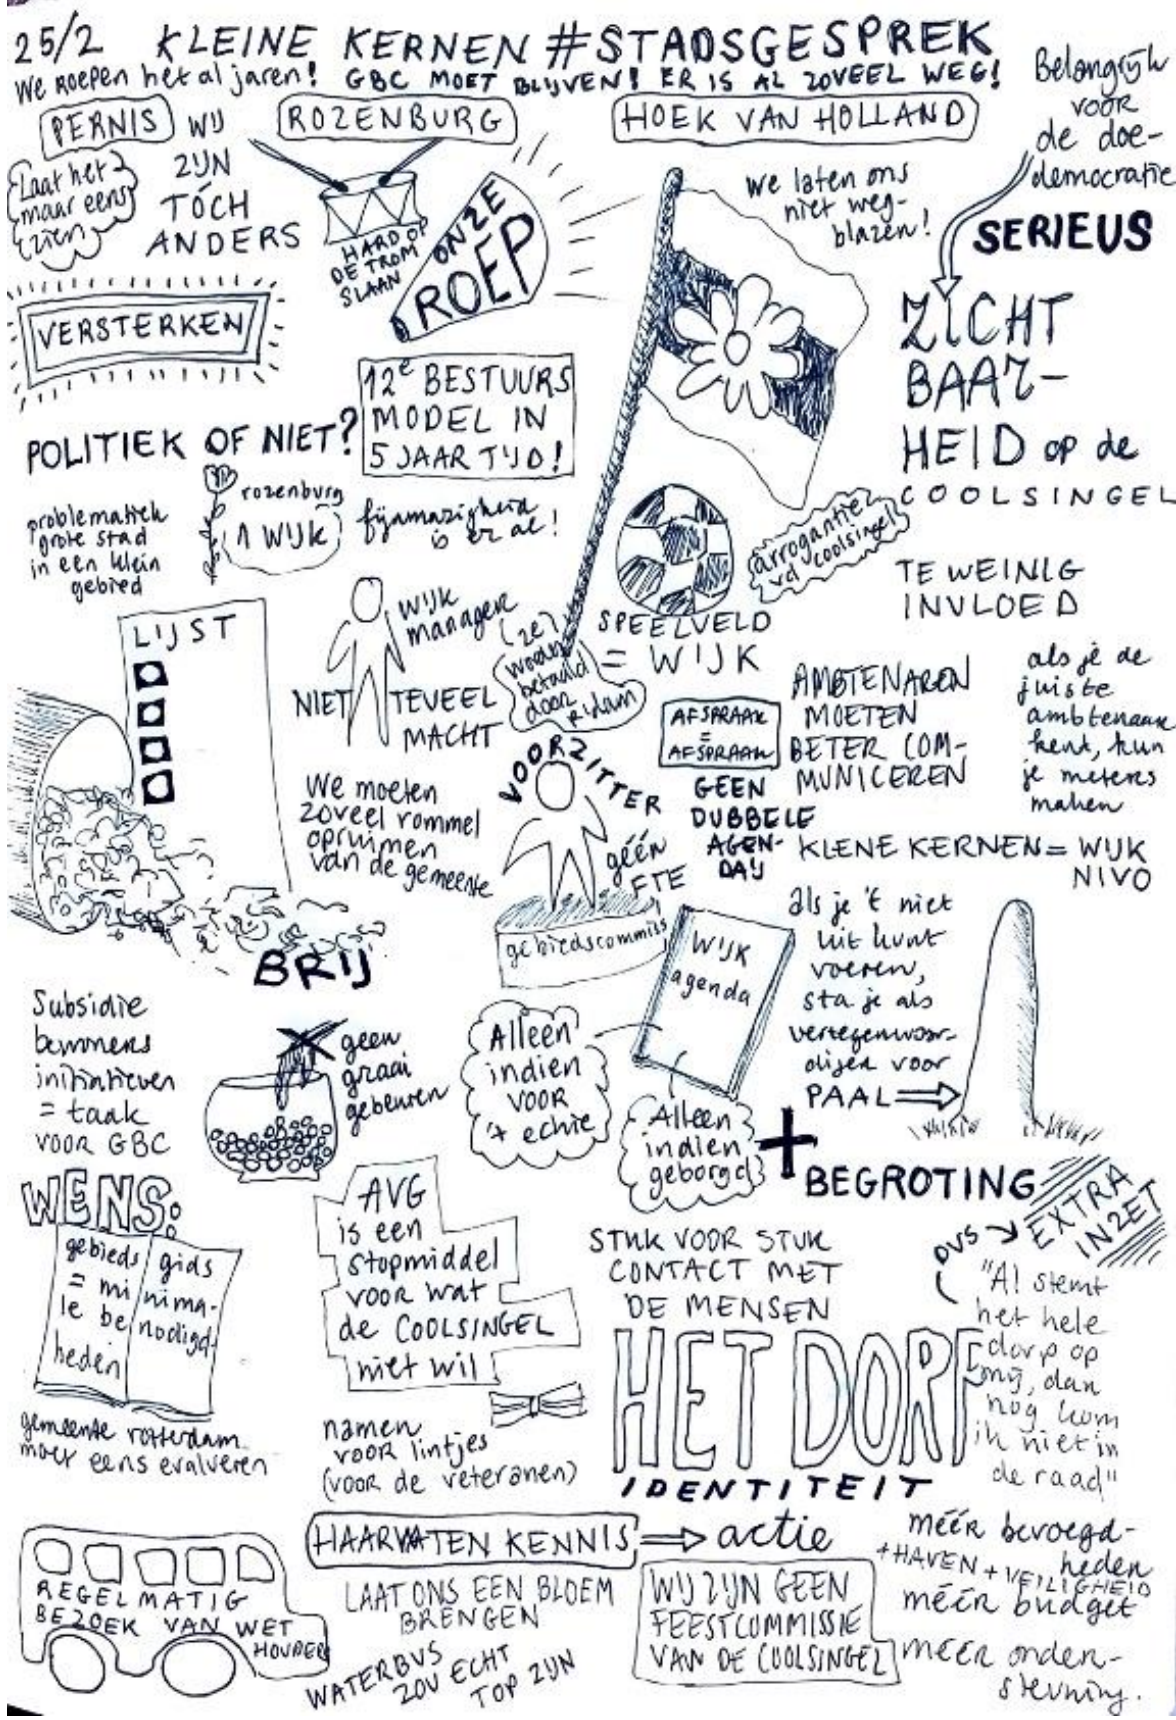 25/2 KLEINE KERNEN #STADSGESPREK
We ROEPEN het al jaren! GBC MOET BLIJVEN! ER IS AL ZOVEEL WEG!
Belangrijk
voor
de doe-
democratie
PERNIS
WIJ
ZIJN
TÓCH
ANDERS
Laat het
maar eens
zien
ROZENBURG
HARD OP
DE TROM
SLAAN
ONZE
ROEP
HOEK VAN HOLLAND
we laten ons
niet weg-
blazen!
SERIEUS
ZICHT
BAAR-
HEID op de
COOLSINGEL
VERSTERKEN
12e BESTUURS
MODEL IN
5 JAAR TIJD!
POLITIEK OF NIET?
problematiek
grote stad
in een klein
gebied
rozenburg
1 WIJK
fijnmazigheid
is er al!
arrogantie
vd coolsingel
TE WEINIG
INVLOED
LIJST
WIJK
manager
NIET TEVEEL
MACHT
(ze)
worden
betaald
door
R'dam
SPEELVELD
= WIJK
AFSPRAAK
=
AFSPRAAK
GEEN
DUBBELE
AGEN-
DA'S
AMBTENAREN
MOETEN
BETER COM-
MUNICEREN
als je de
juiste
ambtenaar
kent, kun
je meters
maken
We moeten
zoveel rommel
opruimen
van de gemeente
VOORZITTER
géén
FTE
gebiedscommiss
KLENE KERNEN = WIJK
NIVO
BRIJ
WIJK
agenda
als je 't niet
uit kunt
voeren,
sta je als
vertegenwoor-
diger voor
PAAL
Subsidie
bewoners
initiatieven
= taak
VOOR GBC
geen
graai
gebeuren
Alleen
indien
VOOR
't echie
Alleen
indien
geborgd
+
BEGROTING
WENS:
gebieds gids
= minima-
le benodigd-
heden
gemeente rotterdam
moet eens evalueren
AVG
is een
stopmiddel
voor wat
de COOLSINGEL
niet wil
STUK VOOR STUK
CONTACT MET
DE MENSEN
DUS
EXTRA
INZET
"Al stemt
het hele
dorp op
mij, dan
nog kom
ik niet in
de raad"
HET DORP
IDENTITEIT
namen
voor lintjes
(voor de veteranen)
HAARVATEN KENNIS
actie
méér bevoegd-
heden
+HAVEN + VEILIGHEID
méér budget
meer onder-
steuning.
REGELMATIG
BEZOEK VAN WET
HOUDERS
LAAT ONS EEN BLOEM
BRENGEN
WATERBUS
ZOU ECHT
TOP ZIJN
WIJ ZIJN GEEN
FEESTCOMMISSIE
VAN DE COOLSINGEL